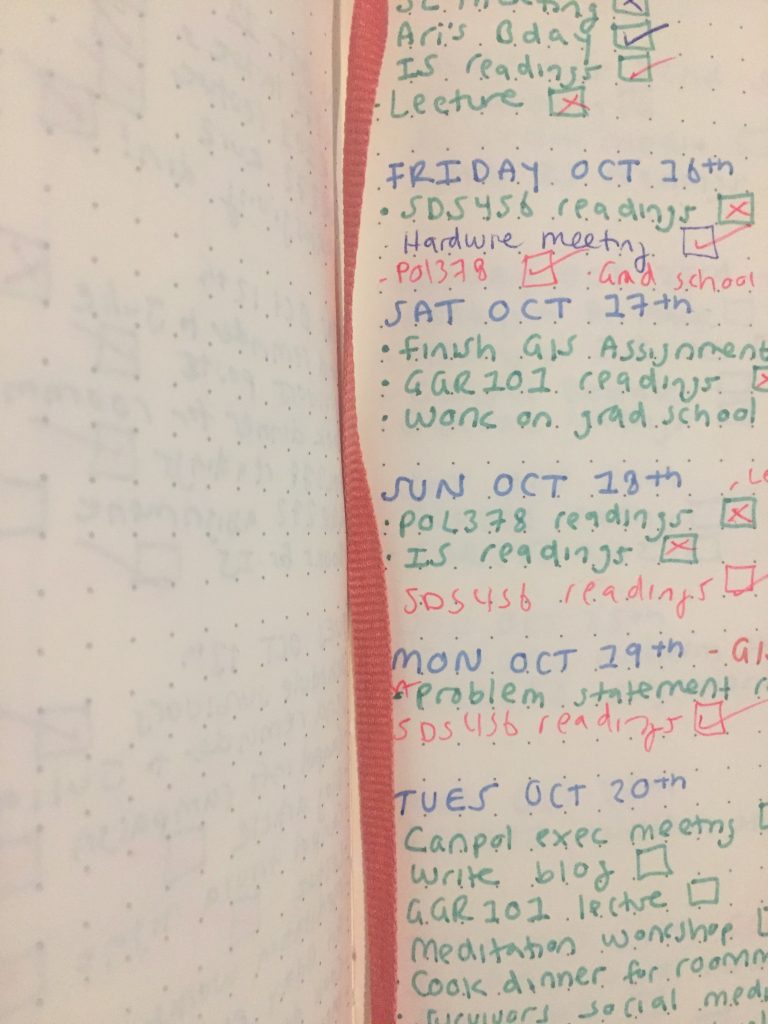 Meeting
Ari's Bday
IS readings
Lecture
FRIDAY OCT 16th
SDS456 readings
Hardwire meeting
- POl378 · Grad school
SAT OCT 17th
• Finish GIS Assignment
• GGR101 readings
• Work on grad school
SUN OCT 18th
• POL378 readings
• IS readings
SDS456 readings
MON OCT 19th
problem statement
SDS456 readings
TUES OCT 20th
Canpol exec meeting
Write blog
GGR101 lectue
Meditation workshop
Cook dinner for
survivors social